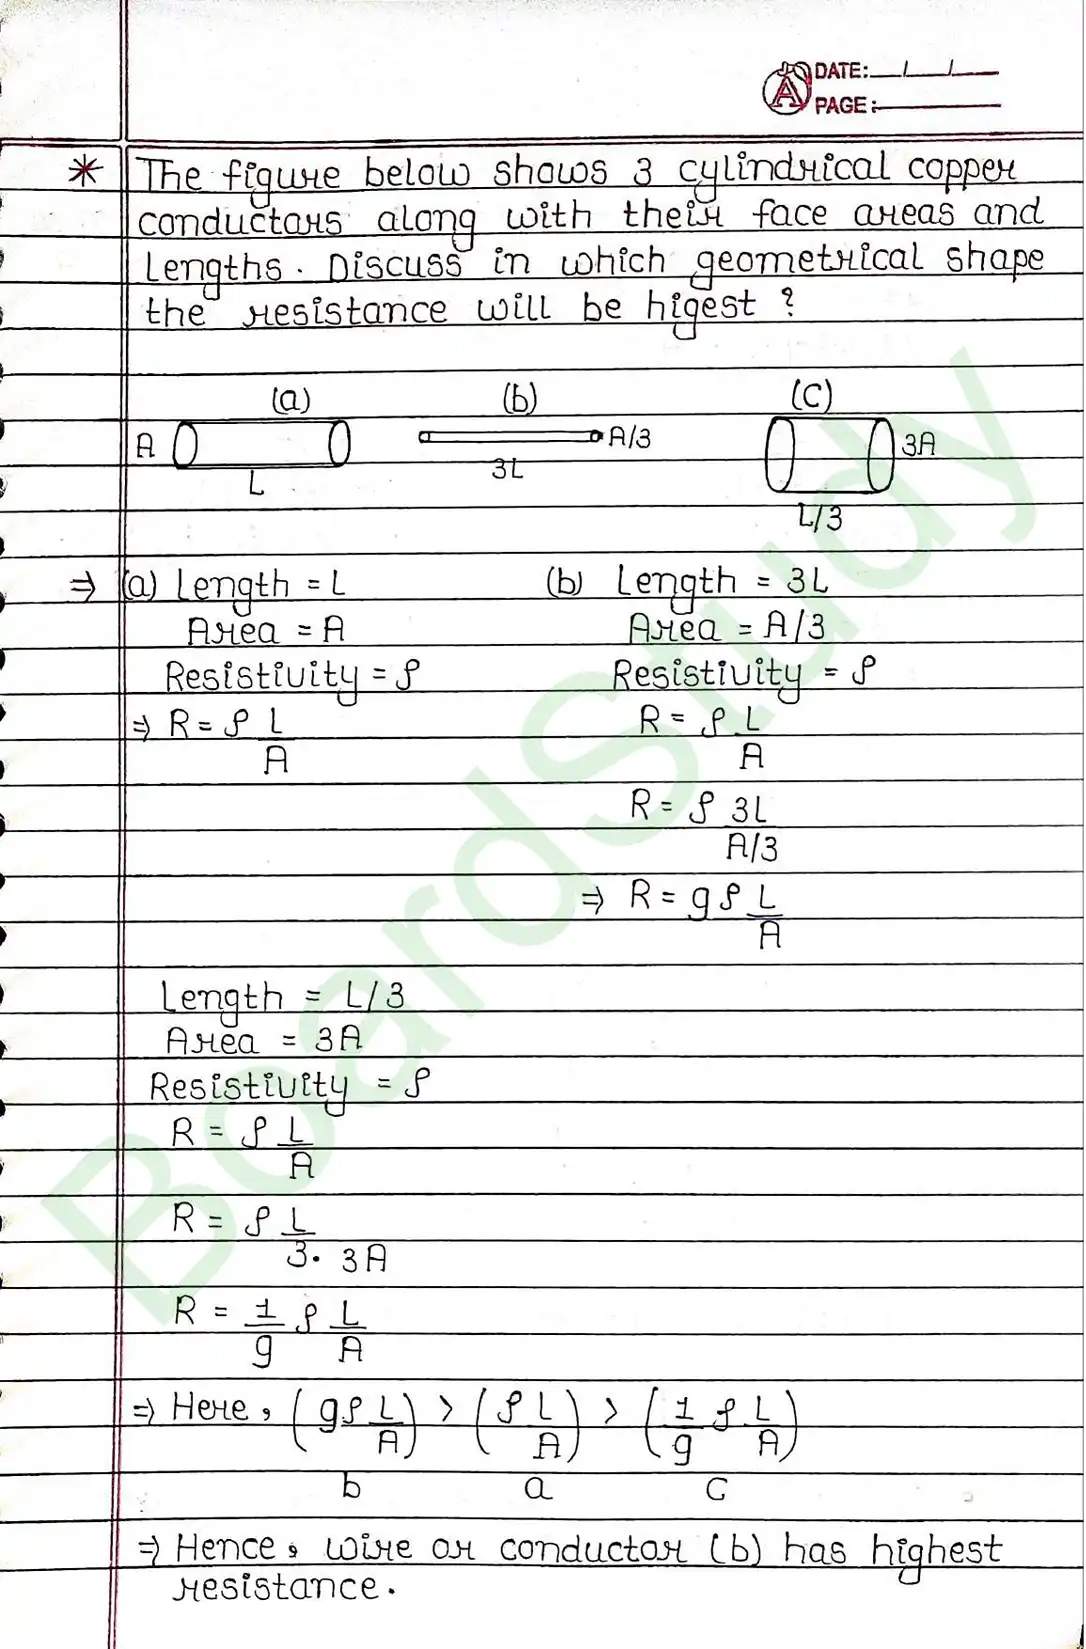 DATE: / /
PAGE:
* The figure below shows 3 cylindrical copper
conductors along with their face areas and
Lengths. Discuss in which geometrical shape
the resistance will be higest ?
(a) (b) (C)
A A/3 3A
L 3L L/3
⇒ (a) Length = L (b) Length = 3L
Area = A Area = A/3
Resistivity = ρ Resistivity = ρ
⇒ R = ρ L/A R = ρ L/A
R = ρ 3L/A/3
⇒ R = 9 ρ L/A
Length = L/3
Area = 3A
Resistivity = ρ
R = ρ L/A
R = ρ L/3. 3A
R = 1/9 ρ L/A
⇒ Here, (9ρ L/A) > (ρ L/A) > (1/9 ρ L/A)
b a C
⇒ Hence, wire or conductor (b) has highest
resistance.
BoardStudy